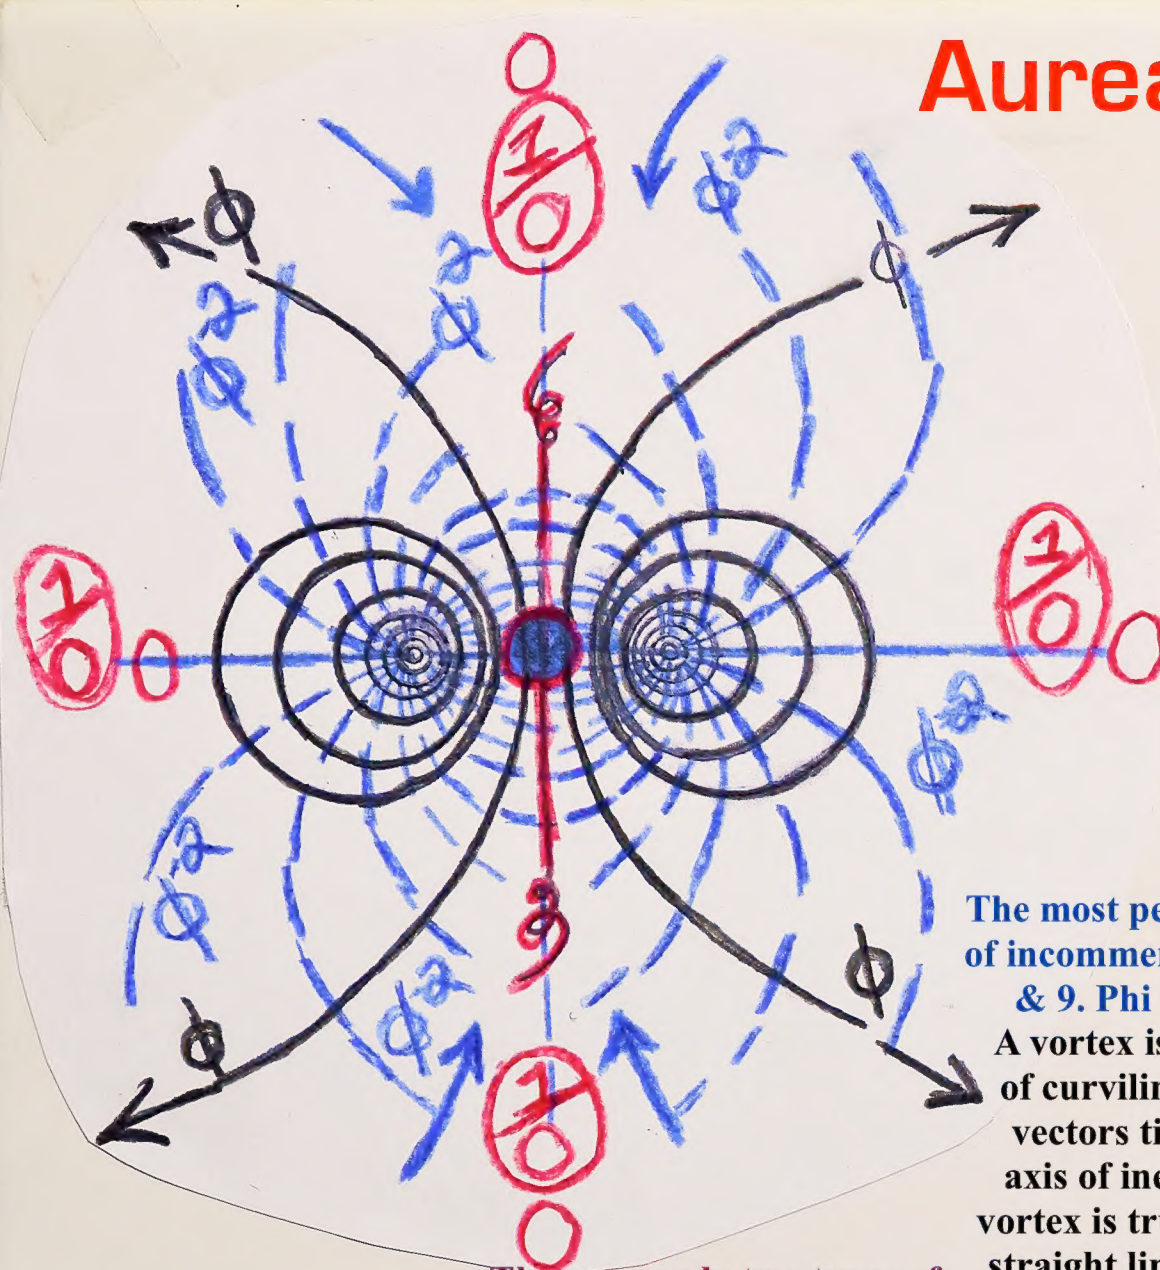 0
Aurea
1/0
ϕ²
ϕ
ϕ
ϕ²
ϕ²
6
1/0
0
1/0
0
ϕ-2
ϕ-2
The most pe
of incommen
9
ϕ
ϕ-2
& 9. Phi
A vortex is
ϕ
of curvilin
1/0
vectors ti
axis of ine
0
vortex is tr
straight lin